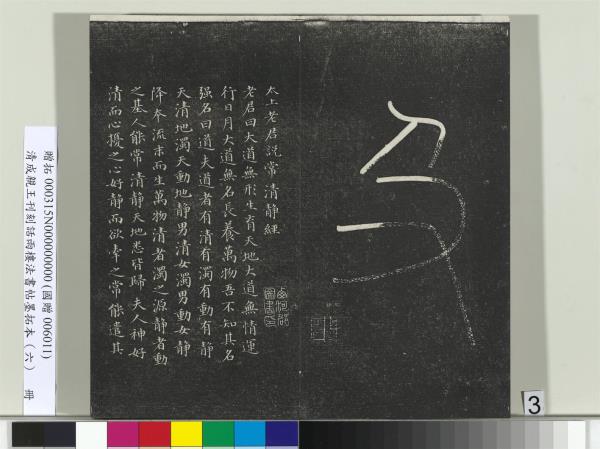 太上老君說常清靜經
老君曰大道無形生育天地大道無情運
行日月大道無名長養萬物吾不知其名
强名曰道夫道者有清有濁有動有靜
天清地濁天動地靜男清女濁男動女靜
降本流末而生萬物清者濁之源靜者動
之基人能常清靜天地悉皆歸夫人神好
清而心擾之心好靜而欲牽之常能遣其
贈拓 000315N000000000 (國贈 006011)
清成親王刊刻詒雨樓法書帖墨拓本（六） 冊
3